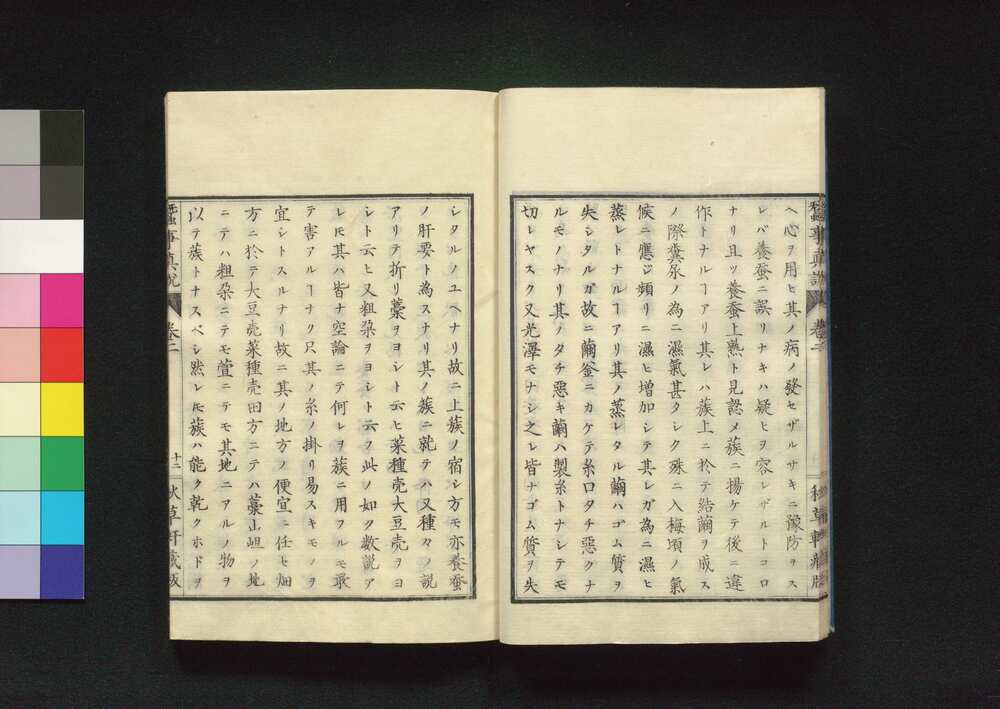 ヘ心ヲ用ヒ其ノ病ノ發セザルサキニ豫防ヲス
レバ養蚕ニ誤リナキハ疑ヒヲ容レザルトコロ
ナリ且ツ養蚕上熟ト見認メ蔟ニ揚ケテ後ニ違
作トナルヿアリ其レハ蔟上ニ於テ結繭ヲ成ス
ノ際糞尿ノ為ニ濕氣甚タシク殊ニ入梅頃ノ氣
候ニ應ジ頻リニ濕ヒ増加シテ其レガ為ニ濕ヒ
蒸レトナルヿアリ其ノ蒸レタル繭ハゴム質ヲ
失シタルガ故ニ繭釜ニカケテ糸口タチ惡クナ
ルモノナリ其ノタチ惡キ繭ハ製糸トナシテモ
切レヤスク又光澤モナシ之レ皆ナゴム質ヲ失
シタルノユヘナリ故ニ上蔟ノ宿シ方モ亦養蚕
ノ肝要ト為スナリ其ノ蔟ニ就テハ又種々ノ説
アリテ折リ藁ヲヨシト云ヒ菜種売大豆売ヲヨ
シト云ヒ又粗朶ヲヨシト云フ此ノ如ク数説ア
レ𪜈其ハ皆ナ空論ニテ何レヲ蔟ニ用フルモ最
テ害アルヿナク只其ノ糸ノ掛リ易スキモノヲ
宜シトスルナリ故ニ其ノ地方ノ便宜ニ任セ畑
方ニ於テ大豆売菜種売田方ニテハ藁山岨ノ地
ニテハ粗朶ニテモ萱ニテモ其地ニアルノ物ヲ
以テ蔟トナスベシ然レ𪜈蔟ハ能ク乾クホドヲ
蠶事眞説
卷二
十二
秋草軒蔵版